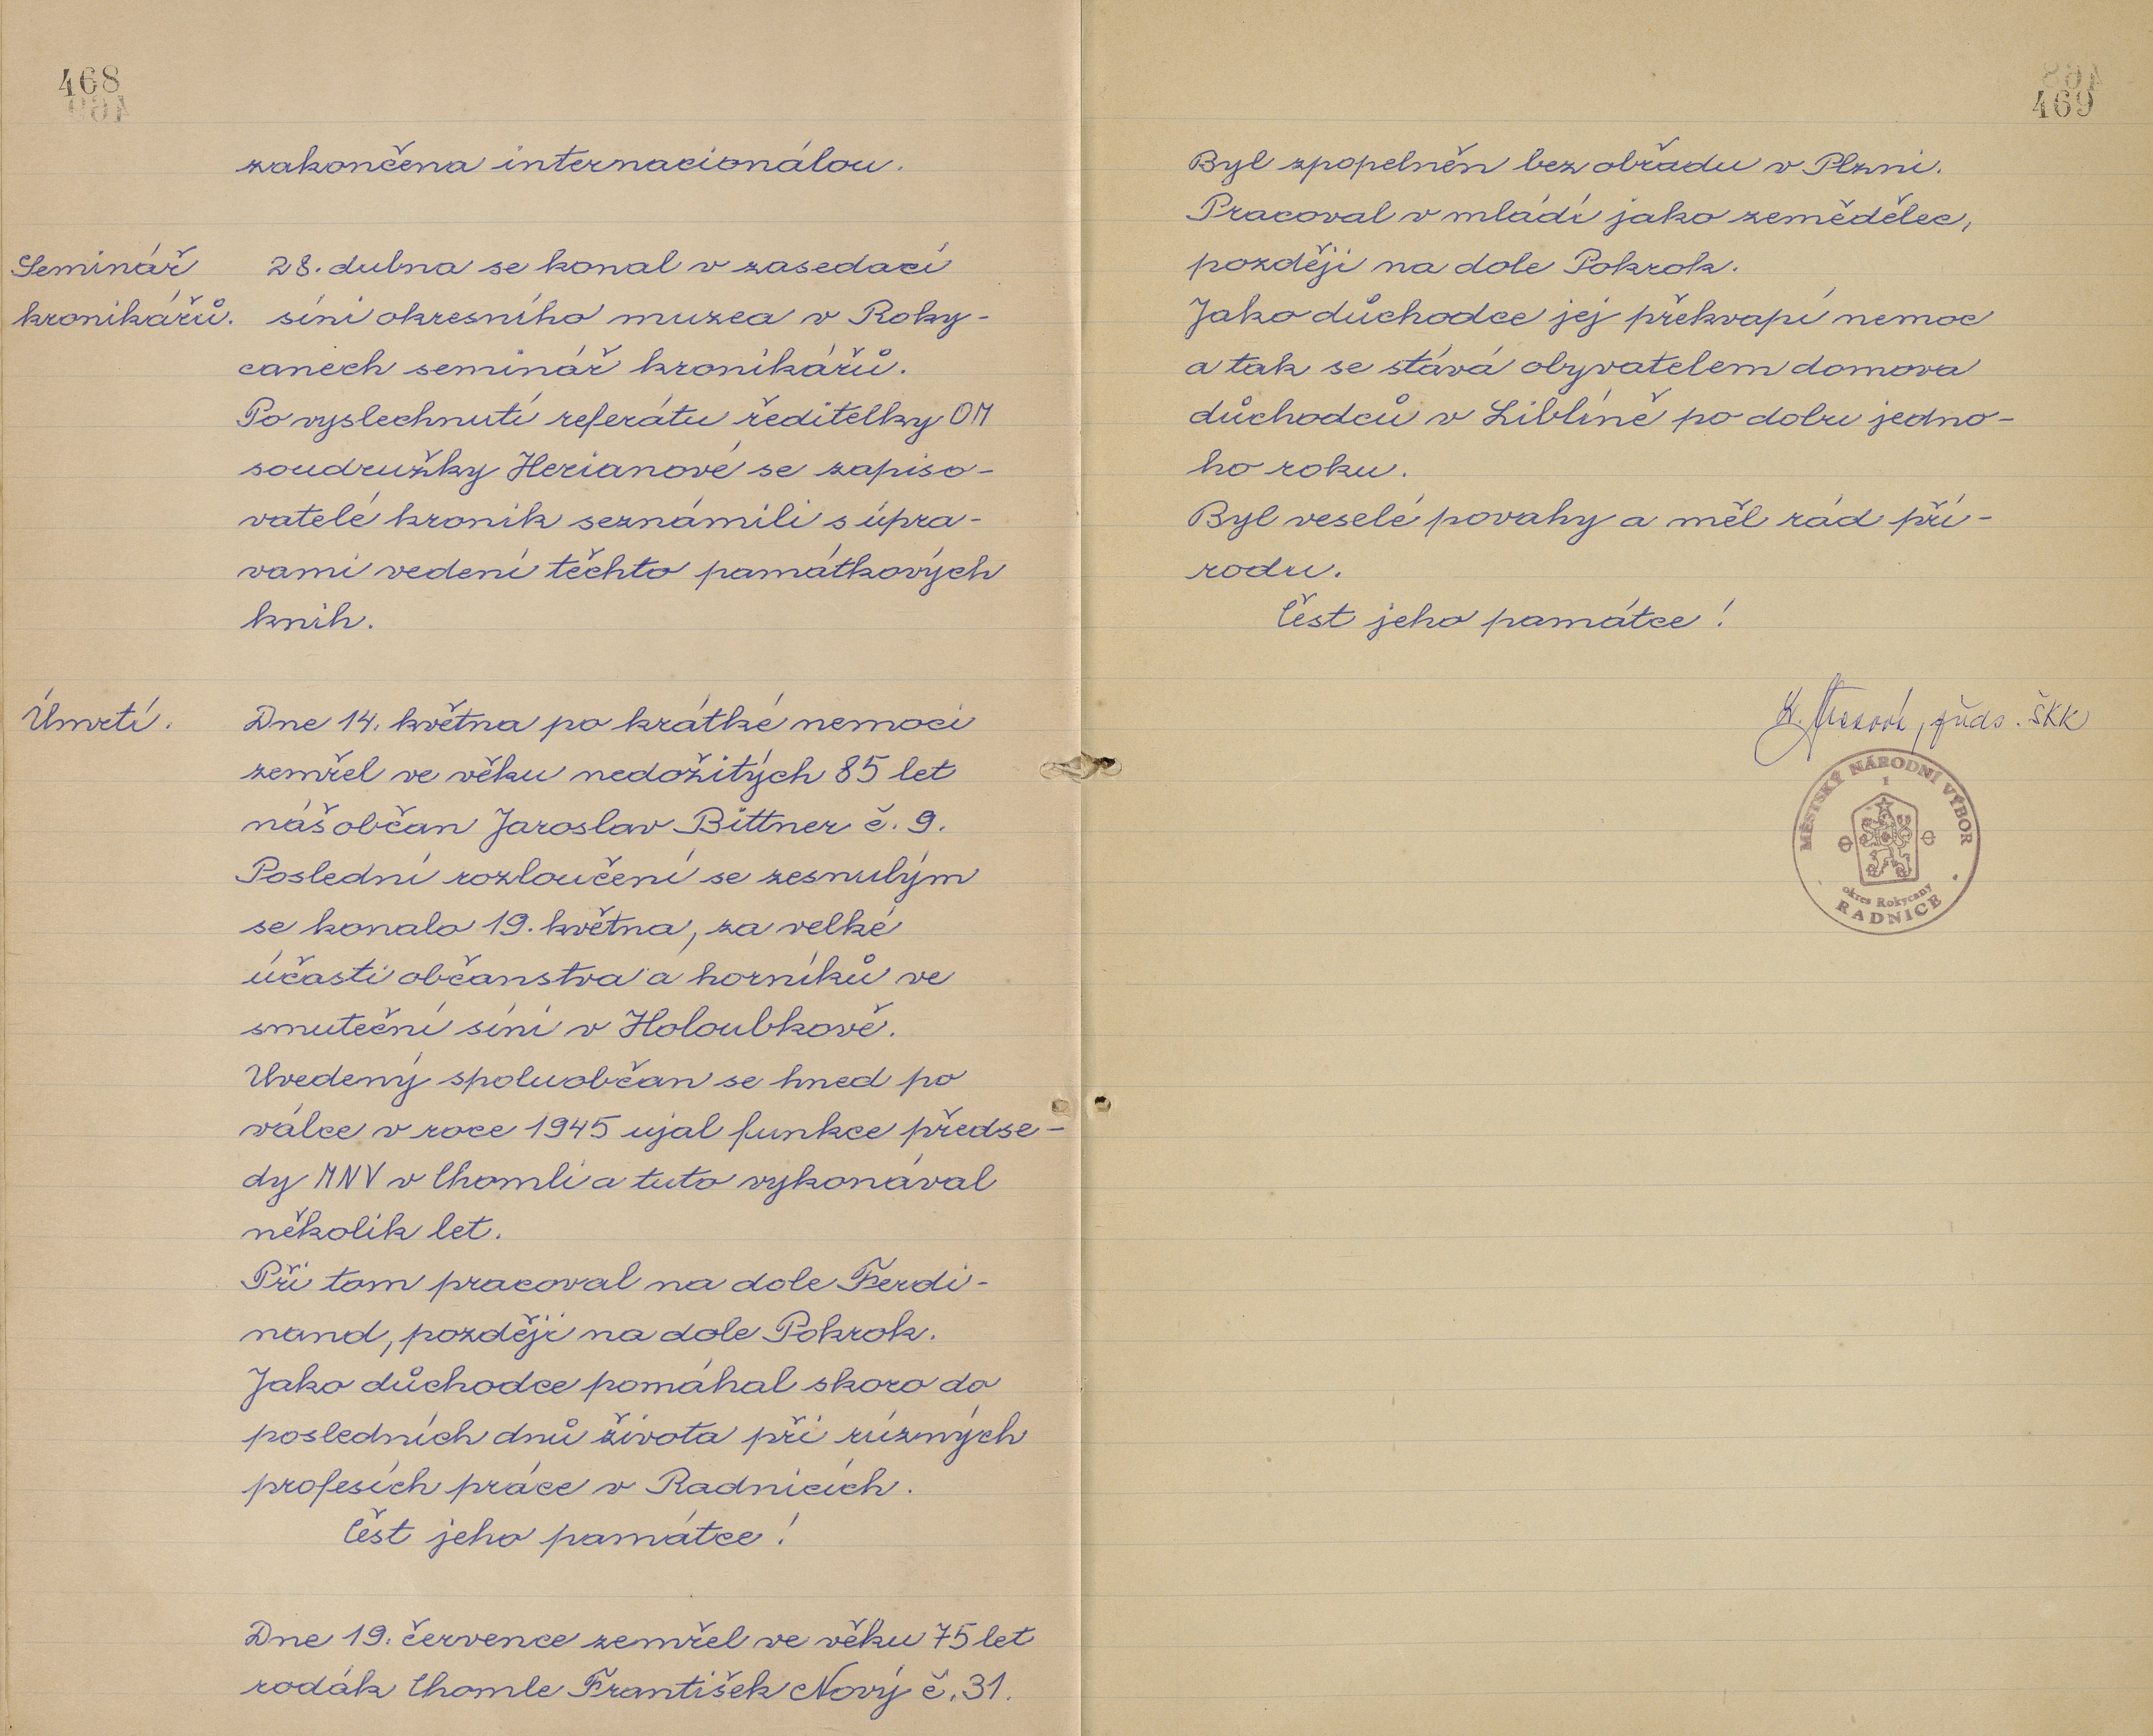 468
zakončena internacionálou.
Seminář
kronikářů.
28. dubna se konal v zasedací
síni okresního muzea v Roky-
canech seminář kronikářů.
Po vyslechnutí referátu ředitelky OM
soudružky Herianové se zapiso-
vatelé kronik seznámili s úpra-
vami vedení těchto památkových
knih.
Úmrtí.
Dne 14. května po krátké nemoci
zemřel ve věku nedožitých 85 let
náš občan Jaroslav Bittner č. 9.
Poslední rozloučení se zesnulým
se konalo 19. května, za velké
účasti občanstva a horníků ve
smuteční síni v Holoubkově.
Uvedený spoluobčan se hned po
válce v roce 1945 ujal funkce předse-
dy MNV v Chomli a tuto vykonával
několik let.
Při tom pracoval na dole Ferdi-
nand, později na dole Pokrok.
Jako důchodce pomáhal skoro do
posledních dnů života při různých
profesích práce v Radnicích.
Čest jeho památce!
Dne 19. července zemřel ve věku 75 let
rodák Chomle František Nový č. 31.
469
Byl zpopelněn bez obřadu v Plzni.
Pracoval v mládí jako zemědělec,
později na dole Pokrok.
Jako důchodce jej překvapí nemoc
a tak se stává obyvatelem domova
důchodců v Liblíně po dobu jedno-
ho roku.
Byl veselé povahy a měl rád pří-
rodu.
Čest jeho památce!
předs. ŠKK
MĚSTSKÝ NÁRODNÍ VÝBOR
1
okres Rokycany
RADNICE